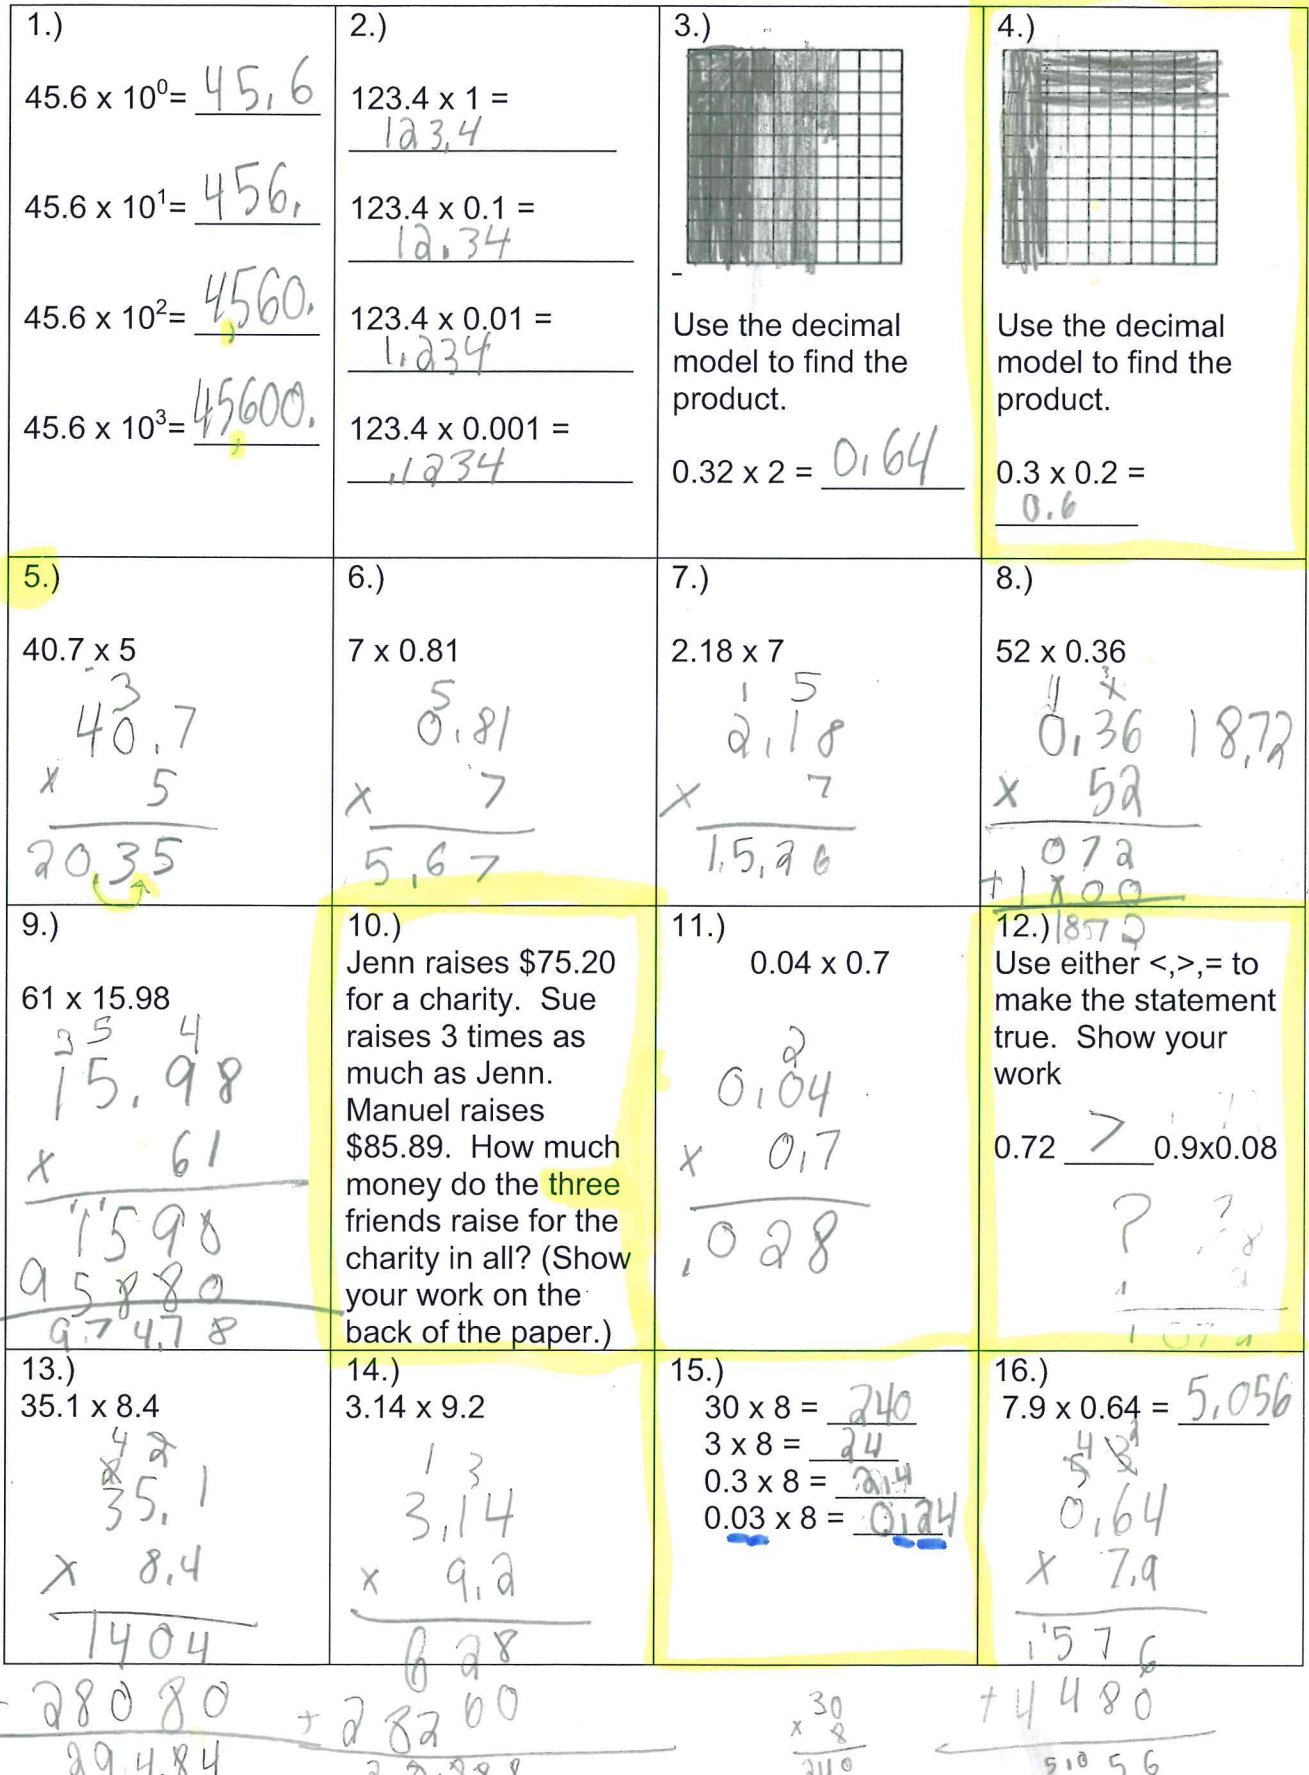 1.)
45.6 x 10⁰= 45.6
45.6 x 10¹= 456.
45.6 x 10²= 4,560.
45.6 x 10³= 45,600.
2.)
123.4 x 1 =
123.4
123.4 x 0.1 =
12.34
123.4 x 0.01 =
1.234
123.4 x 0.001 =
.1234
3.)
Use the decimal
model to find the
product.
0.32 x 2 = 0.64
4.)
Use the decimal
model to find the
product.
0.3 x 0.2 =
0.6
5.)
40.7 x 5
3
40.7
x 5
20.35
6.)
7 x 0.81
5
0.81
x 7
5.67
7.)
2.18 x 7
1 5
2.18
x 7
15.26
8.)
52 x 0.36
0.36 18.72
x 52
072
+1800
1872
9.)
61 x 15.98
3 5 4
15.98
x 61
1598
95880
974.78
10.)
Jenn raises $75.20
for a charity. Sue
raises 3 times as
much as Jenn.
Manuel raises
$85.89. How much
money do the three
friends raise for the
charity in all? (Show
your work on the
back of the paper.)
11.)
0.04 x 0.7
2
0.04
x 0.7
.028
12.)
Use either <,>,= to
make the statement
true. Show your
work
0.72 > 0.9x0.08
?
13.)
35.1 x 8.4
4 2
35.1
x 8.4
1404
28080
294.84
14.)
3.14 x 9.2
1 3
3.14
x 9.2
628
+ 28260
15.)
30 x 8 = 240
3 x 8 = 24
0.3 x 8 = 2.4
0.03 x 8 = 0.24
30
x 8
240
16.)
7.9 x 0.64 = 5.056
0.64
x 7.9
1576
+4480
5.056